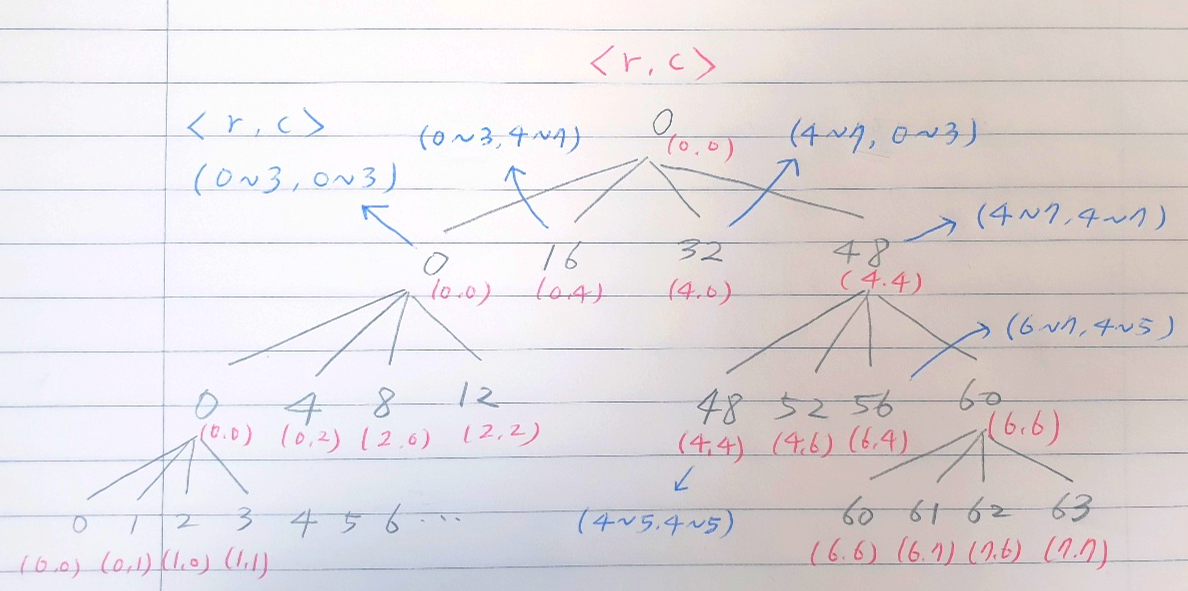 <r, c>
<r, c> (0~3, 4~7) 0 (4~7, 0~3)
(0,0)
(0~3, 0~3)
(4~7, 4~7)
0 16 32 48
(0,0) (0,4) (4,0) (4,4)
(6~7, 4~5)
0 4 8 12 48 52 56 60
(0,0) (0,2) (2,0) (2,2) (4,4) (4,6) (6,4) (6,6)
0 1 2 3 4 5 6 ... (4~5, 4~5) 60 61 62 63
(0,0) (0,1) (1,0) (1,1) (6,6) (6,7) (7,6) (7,7)